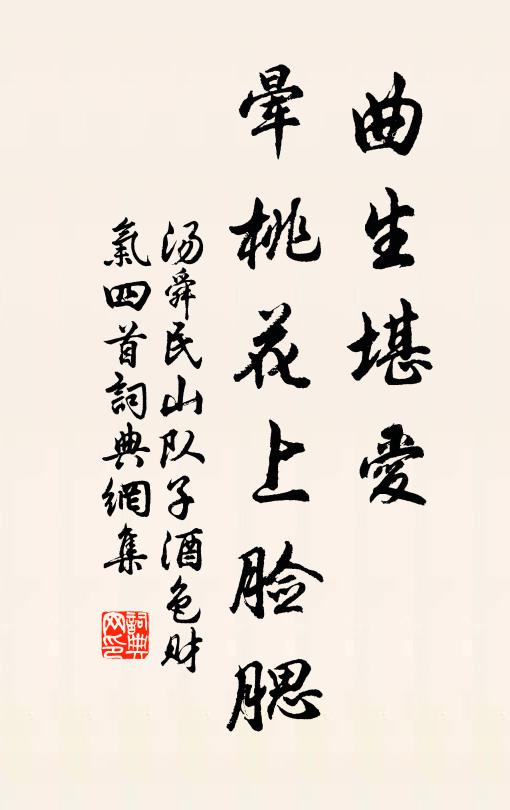 曲生堪愛
暈桃花上脸腮
汤舜民山队子酒色财
氣四首詞典網集
詞典
网印